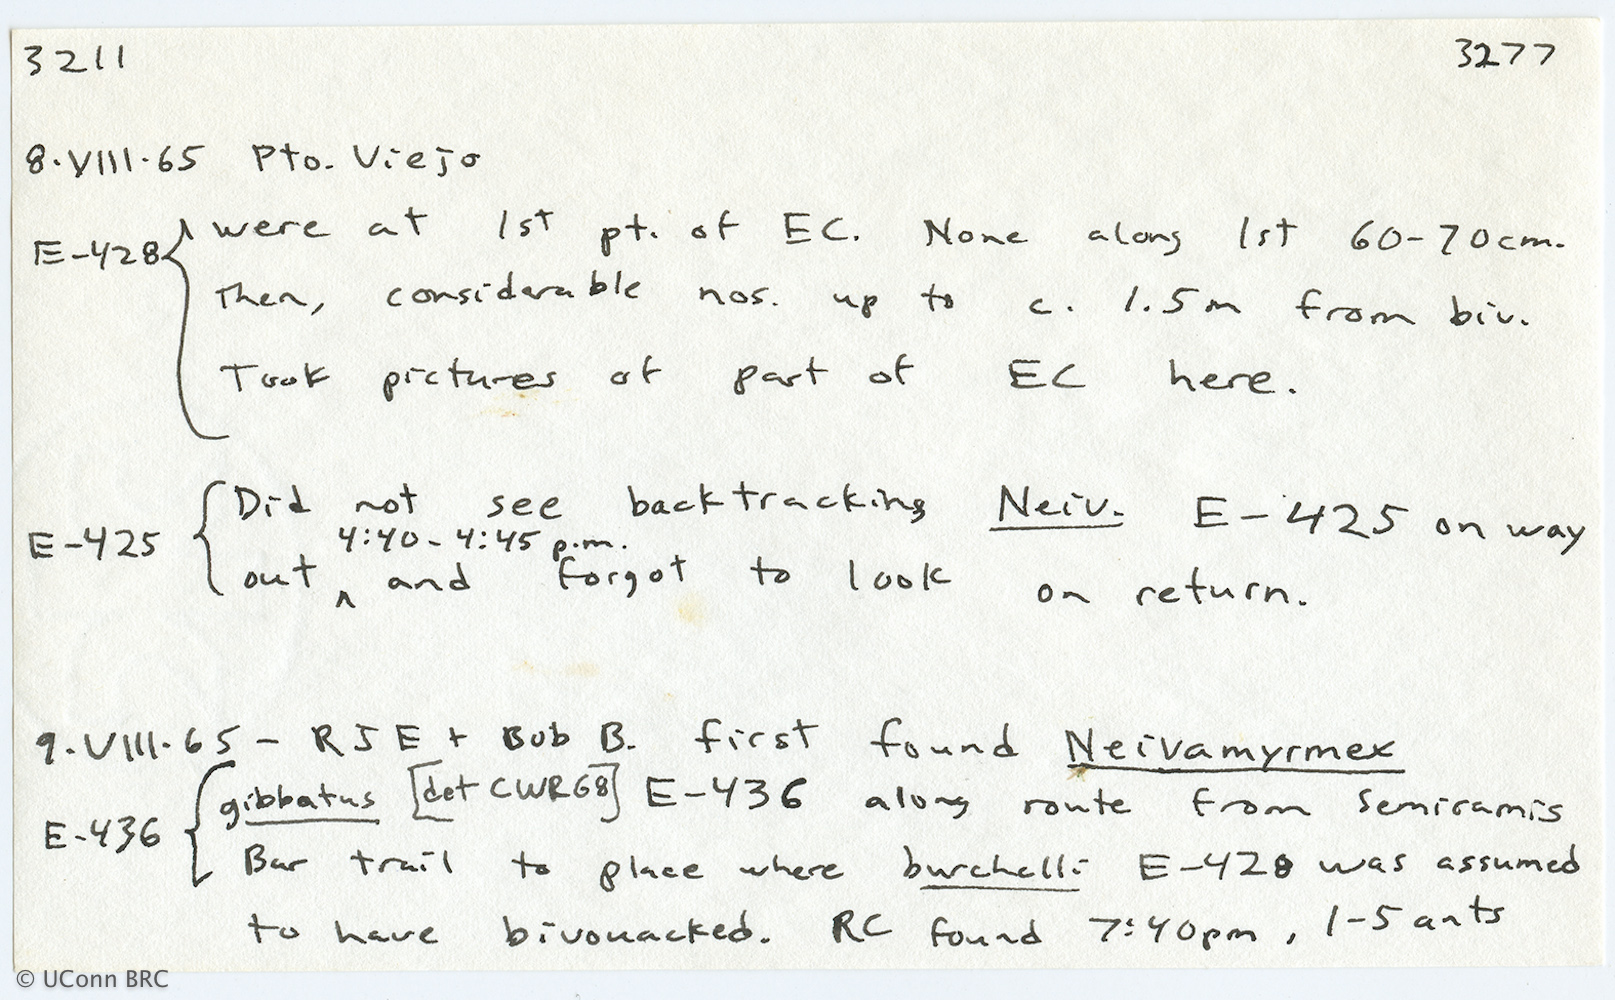 3211 3277
8.VIII.65 Pto. Viejo
E-428 { were at 1st pt. of EC. None along 1st 60-70cm.
Then, considerable nos. up to c. 1.5m from biv.
Took pictures of part of EC here.
E-425 { Did not see backtracking Neiv. E-425 on way
4:40-4:45 p.m.
out ^ and forgot to look on return.
9.VIII.65 - RJE + Bob B. first found Neivamyrmex
E-436 { gibbatus [det CWR68] E-436 along route from Semiramis
Bar trail to place where burchelli E-428 was assumed
to have bivouacked. RC found 7:40pm, 1-5 ants
© UConn BRC